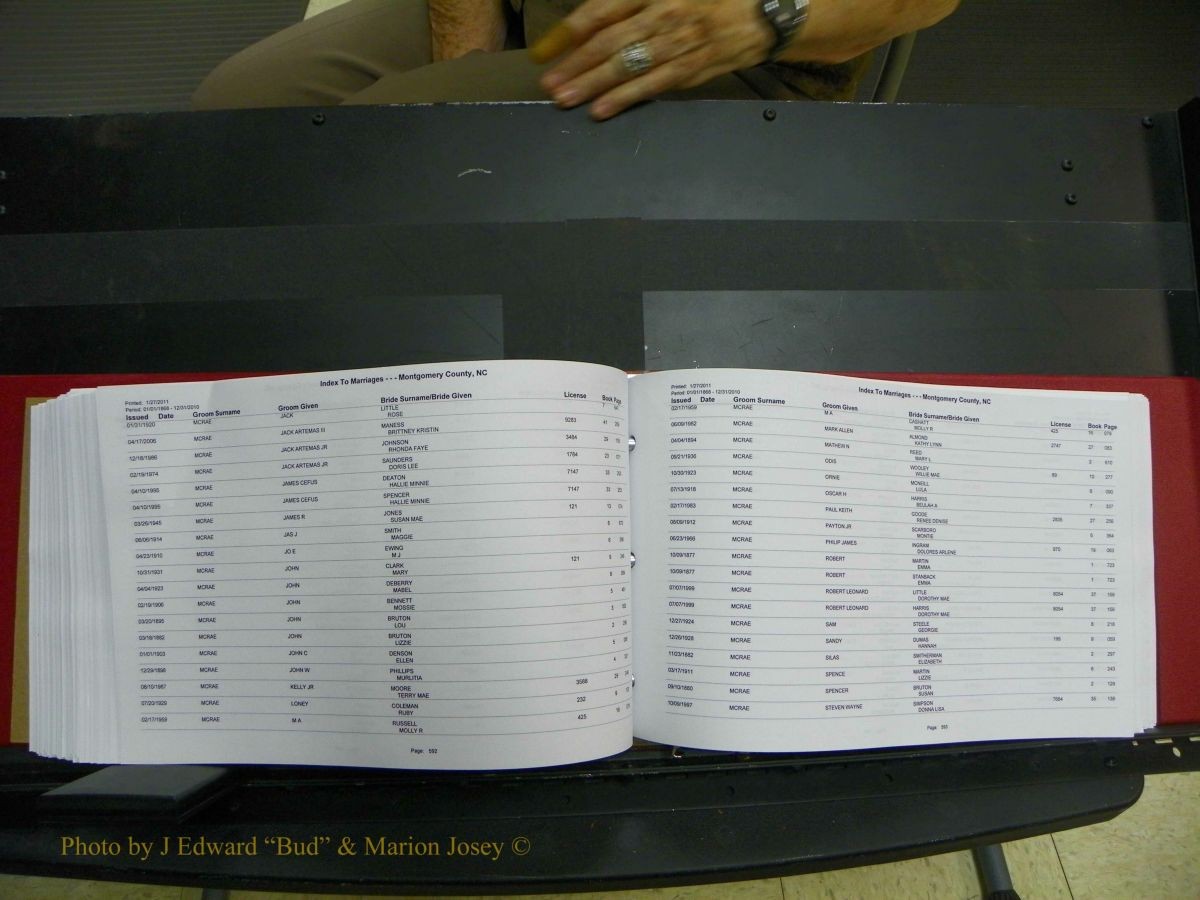 Index To Marriages - - - Montgomery County, NC
Printed: 1/27/2011
Period: 01/01/1868 - 12/31/2010
Issued Date Groom Surname Groom Given Bride Surname/Bride Given License Book Page
01/31/1920 MCRAE JACK LITTLE
ROSE
04/17/2006 MCRAE JACK ARTEMAS III MANESS 9283 41
BRITTNEY KRISTIN
12/18/1986 MCRAE JACK ARTEMAS JR JOHNSON 3484 29
RHONDA FAYE
02/19/1974 MCRAE JACK ARTEMAS JR SAUNDERS 1784 23
DORIS LEE
04/10/1995 MCRAE JAMES CEFUS DEATON 7147 33
HALLIE MINNIE
04/10/1995 MCRAE JAMES CEFUS SPENCER 7147 33
HALLIE MINNIE
03/26/1945 MCRAE JAMES R JONES 121 13
SUSAN MAE
06/06/1914 MCRAE JAS J SMITH
MAGGIE
04/23/1910 MCRAE JO E EWING
M J
10/31/1931 MCRAE JOHN CLARK 121 9
MARY
04/04/1923 MCRAE JOHN DEBERRY
MABEL
02/19/1906 MCRAE JOHN BENNETT 5
MOSSIE
03/20/1895 MCRAE JOHN BRUTON 3
LOU
03/18/1882 MCRAE JOHN BRUTON 2
LIZZIE
01/01/1903 MCRAE JOHN C DENSON 5
ELLEN
12/29/1898 MCRAE JOHN W PHILLIPS 4
MURLITIA
06/10/1987 MCRAE KELLY JR MOORE 3588 29
TERRY MAE
07/20/1929 MCRAE LONEY COLEMAN 232 9
RUBY
02/17/1959 MCRAE M A RUSSELL 425 18
MOLLY R
Page: 592
Index To Marriages - - - Montgomery County, NC
Printed: 1/27/2011
Period: 01/01/1868 - 12/31/2010
Issued Date Groom Surname Groom Given Bride Surname/Bride Given License Book Page
02/17/1959 MCRAE M A CASHATT 425 18 079
MOLLY R
06/09/1982 MCRAE MARK ALLEN ALMOND 2747 27 083
KATHY LYNN
04/04/1894 MCRAE MATHEW N REED 3 610
MARY L
09/21/1936 MCRAE ODIS WOOLEY 89 10 277
WILLIE MAE
10/30/1923 MCRAE ORNIE MCNEILL 8 090
LULA
07/13/1918 MCRAE OSCAR H HARRIS 7 337
BEULAH A
02/17/1983 MCRAE PAUL KEITH GOODE 2835 27 256
RENEE DENISE
08/09/1912 MCRAE PAYTON JR SCARBORO 6 364
MONTIE
06/23/1966 MCRAE PHILIP JAMES INGRAM 970 19 063
DOLORES ARLENE
10/09/1877 MCRAE ROBERT MARTIN 1 723
EMMA
10/09/1877 MCRAE ROBERT STANBACK 1 723
EMMA
07/07/1999 MCRAE ROBERT LEONARD LITTLE 8054 37 159
DOROTHY MAE
07/07/1999 MCRAE ROBERT LEONARD HARRIS 8054 37 159
DOROTHY MAE
12/27/1924 MCRAE SAM STEELE 8 218
GEORGIE
12/26/1928 MCRAE SANDY DUMAS 195 9 059
HANNAH
11/23/1882 MCRAE SILAS SMITHERMAN 2 297
ELIZABETH
03/17/1911 MCRAE SPENCE MARTIN 6 243
LIZZIE
09/10/1880 MCRAE SPENCER BRUTON 2 129
SUSAN
10/09/1997 MCRAE STEVEN WAYNE SIMPSON 7694 35 139
DONNA LISA
Page: 593
Photo by J Edward “Bud” & Marion Josey ©